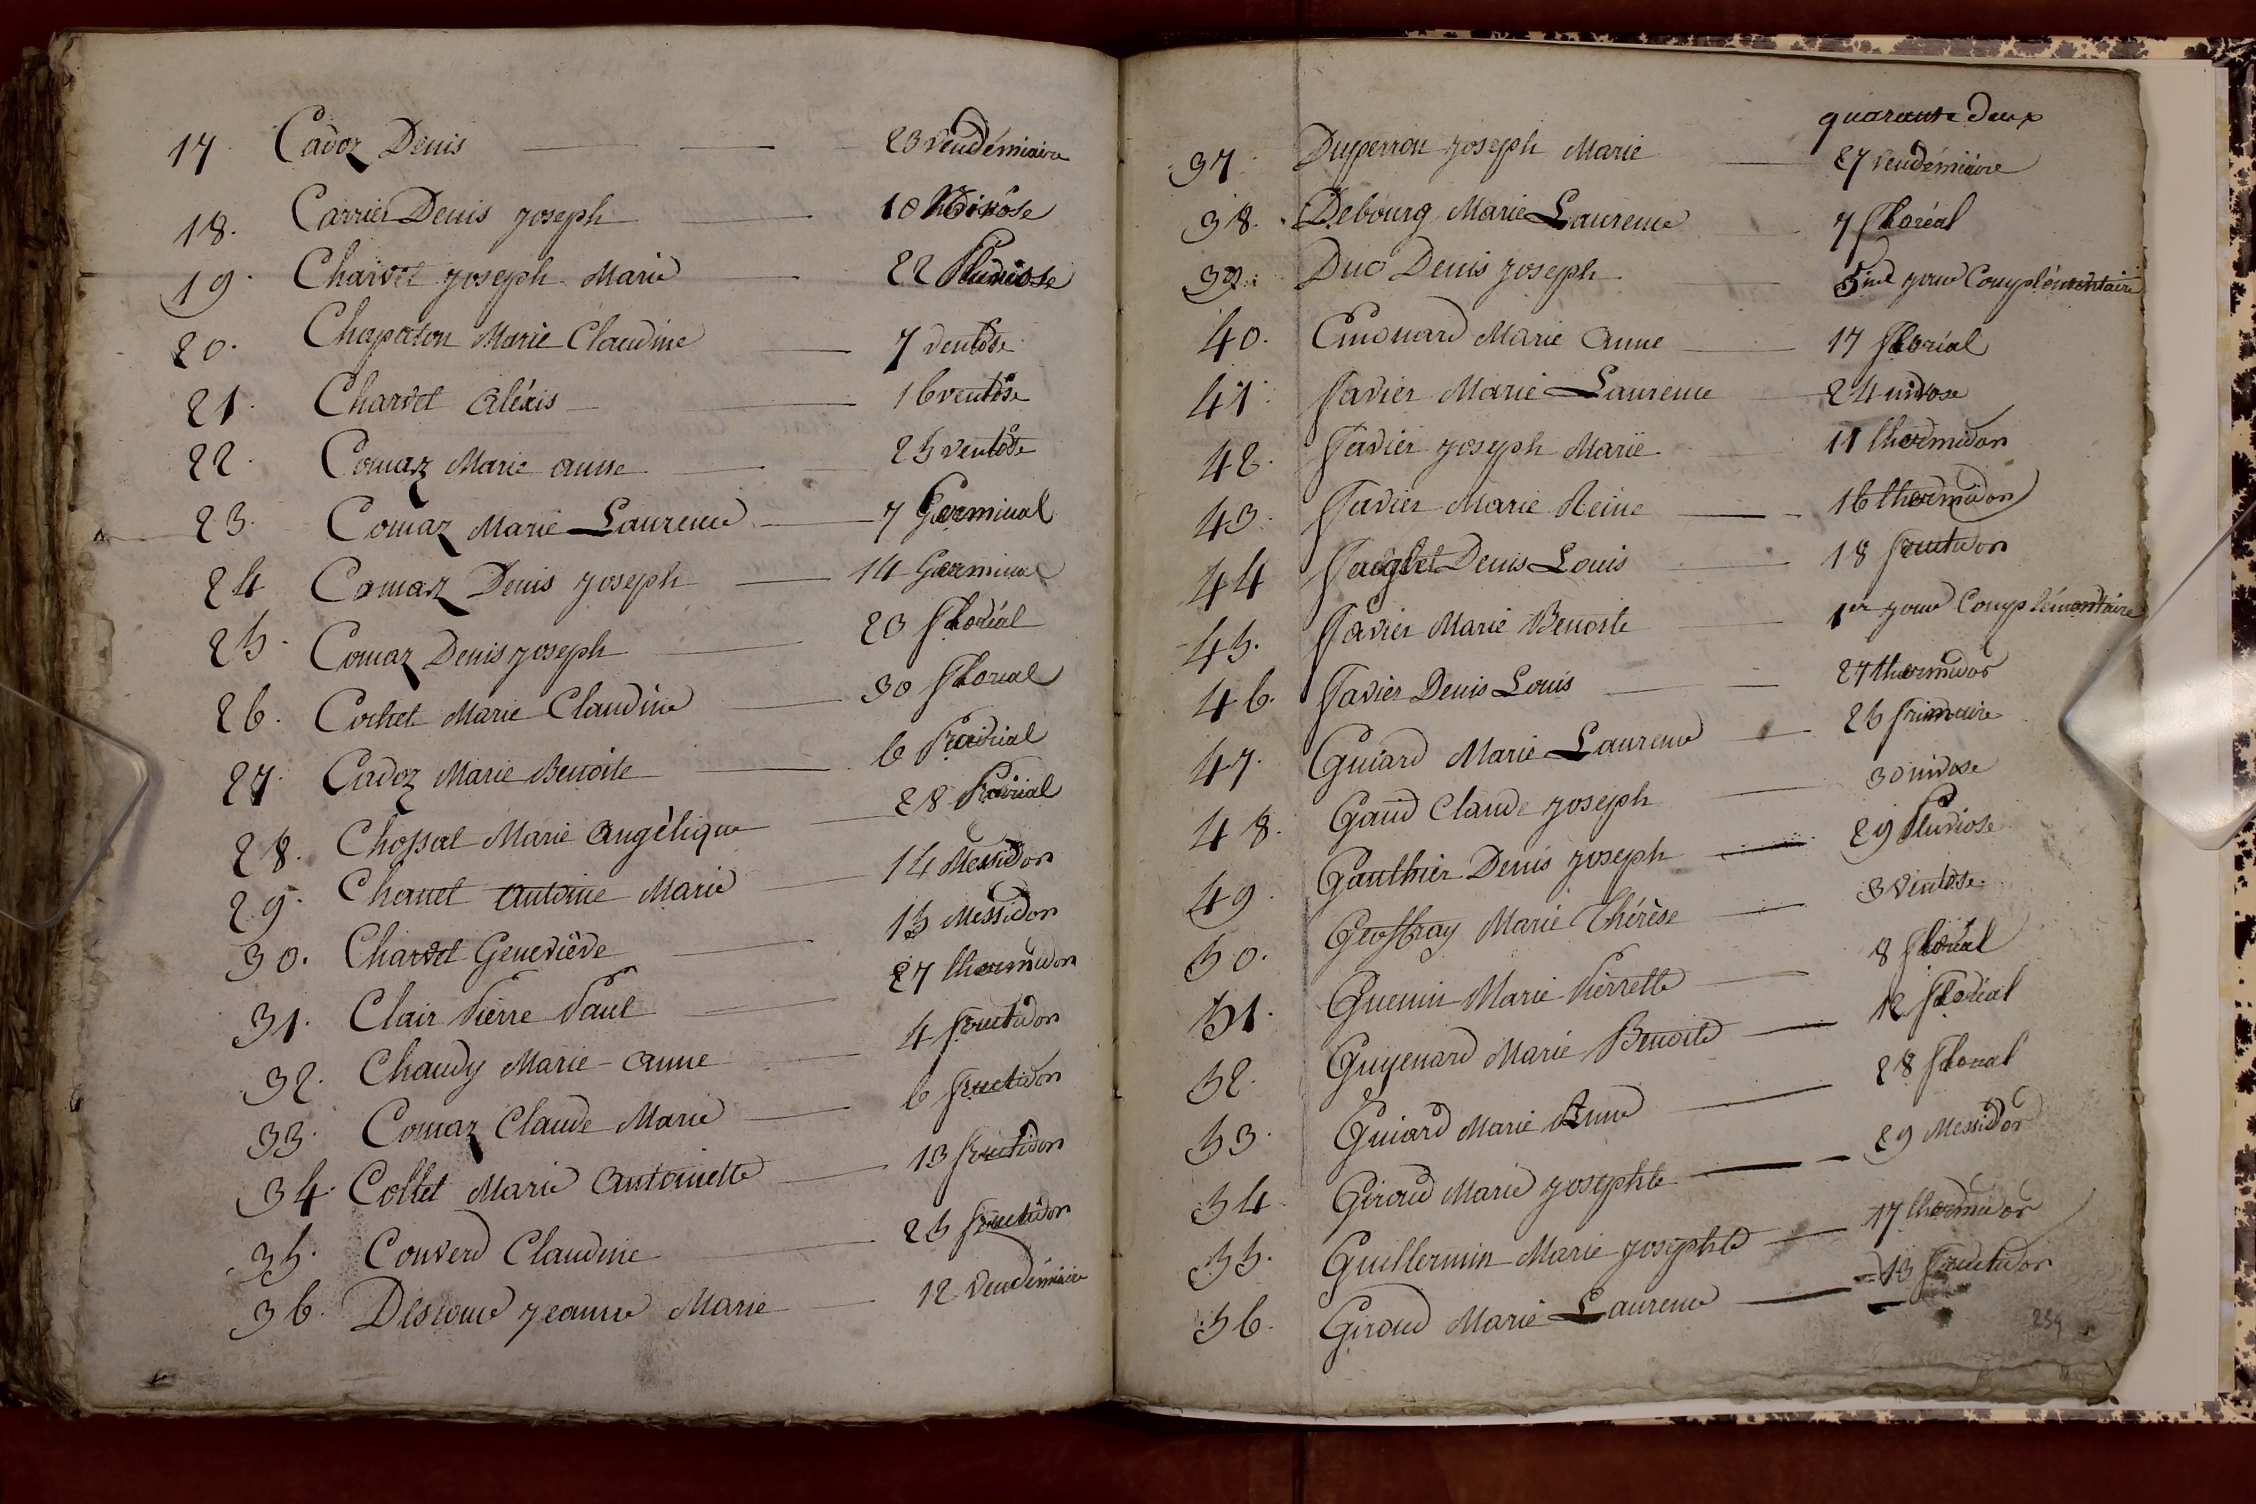 17. Cadoz Denis 23 vendémiaire
18. Carrier Denis joseph 10 Nivôse
19. Charvet joseph Marie 22 Pluviose
20. Chapaton Marie Claudine 7 ventôse
21. Charvet aléxis 16 ventôse
22. Comaz Marie anne 25 ventôse
23. Comaz Marie Laurence 7 Germinal
24 Comaz Denis joseph 14 Germinal
25. Comaz Denis joseph 23 floréal
26. Cochet Marie Claudine 30 floréal
27. Cadoz Marie Benoite 6 Prairial
28. Chossat Marie angélique 28 Prairial
29. Chanel antoine Marie 14 Messidor
30. Charvet Geneviève 15 Messidor
31. Clair Pierre Paul 27 thermidor
32. Chaudy Marie-anne 4 fructidor
33. Comaz Claude Marie 6 fructidor
34. Collet Marie antoinette 13 fructidor
35. Converd Claudine 25 fructidor
36. jeanne Marie 12 vendémiaire
quarante deux
37. Duperron joseph Marie 27 vendémiaire
38. Debourg Marie Laurence 7 floréal
39. Duc Denis joseph 5me jour Complémentaire
40. Marie anne 17 floréal
41. favier Marie Laurence 24 nivose
42. favier joseph Marie 11 thermidor
43. favier Marie Reine 16 thermidor
44 Denis Louis 18 fructidor
45. favier Marie Benoite 1er jour Complémentaire
46. favier Denis Louis 27 thermidor
47. Guiard Marie Laurence 25 frimaire
48. Gaud Claude joseph 30 nivose
49. Gauthier Denis joseph 29 Pluviose
50. Geoffray Marie Thérèse 3 ventose
51. Guenin Marie Pierrette 8 floréal
52. Guyenard Marie Benoite 12 floréal
53. Guiard Marie Anne 28 floréal
54 Giroud Marie josephte 29 Messidor
55. Guillermin Marie josephte 17 thermidor
56. Giroud Marie Laurence 13 fructidor